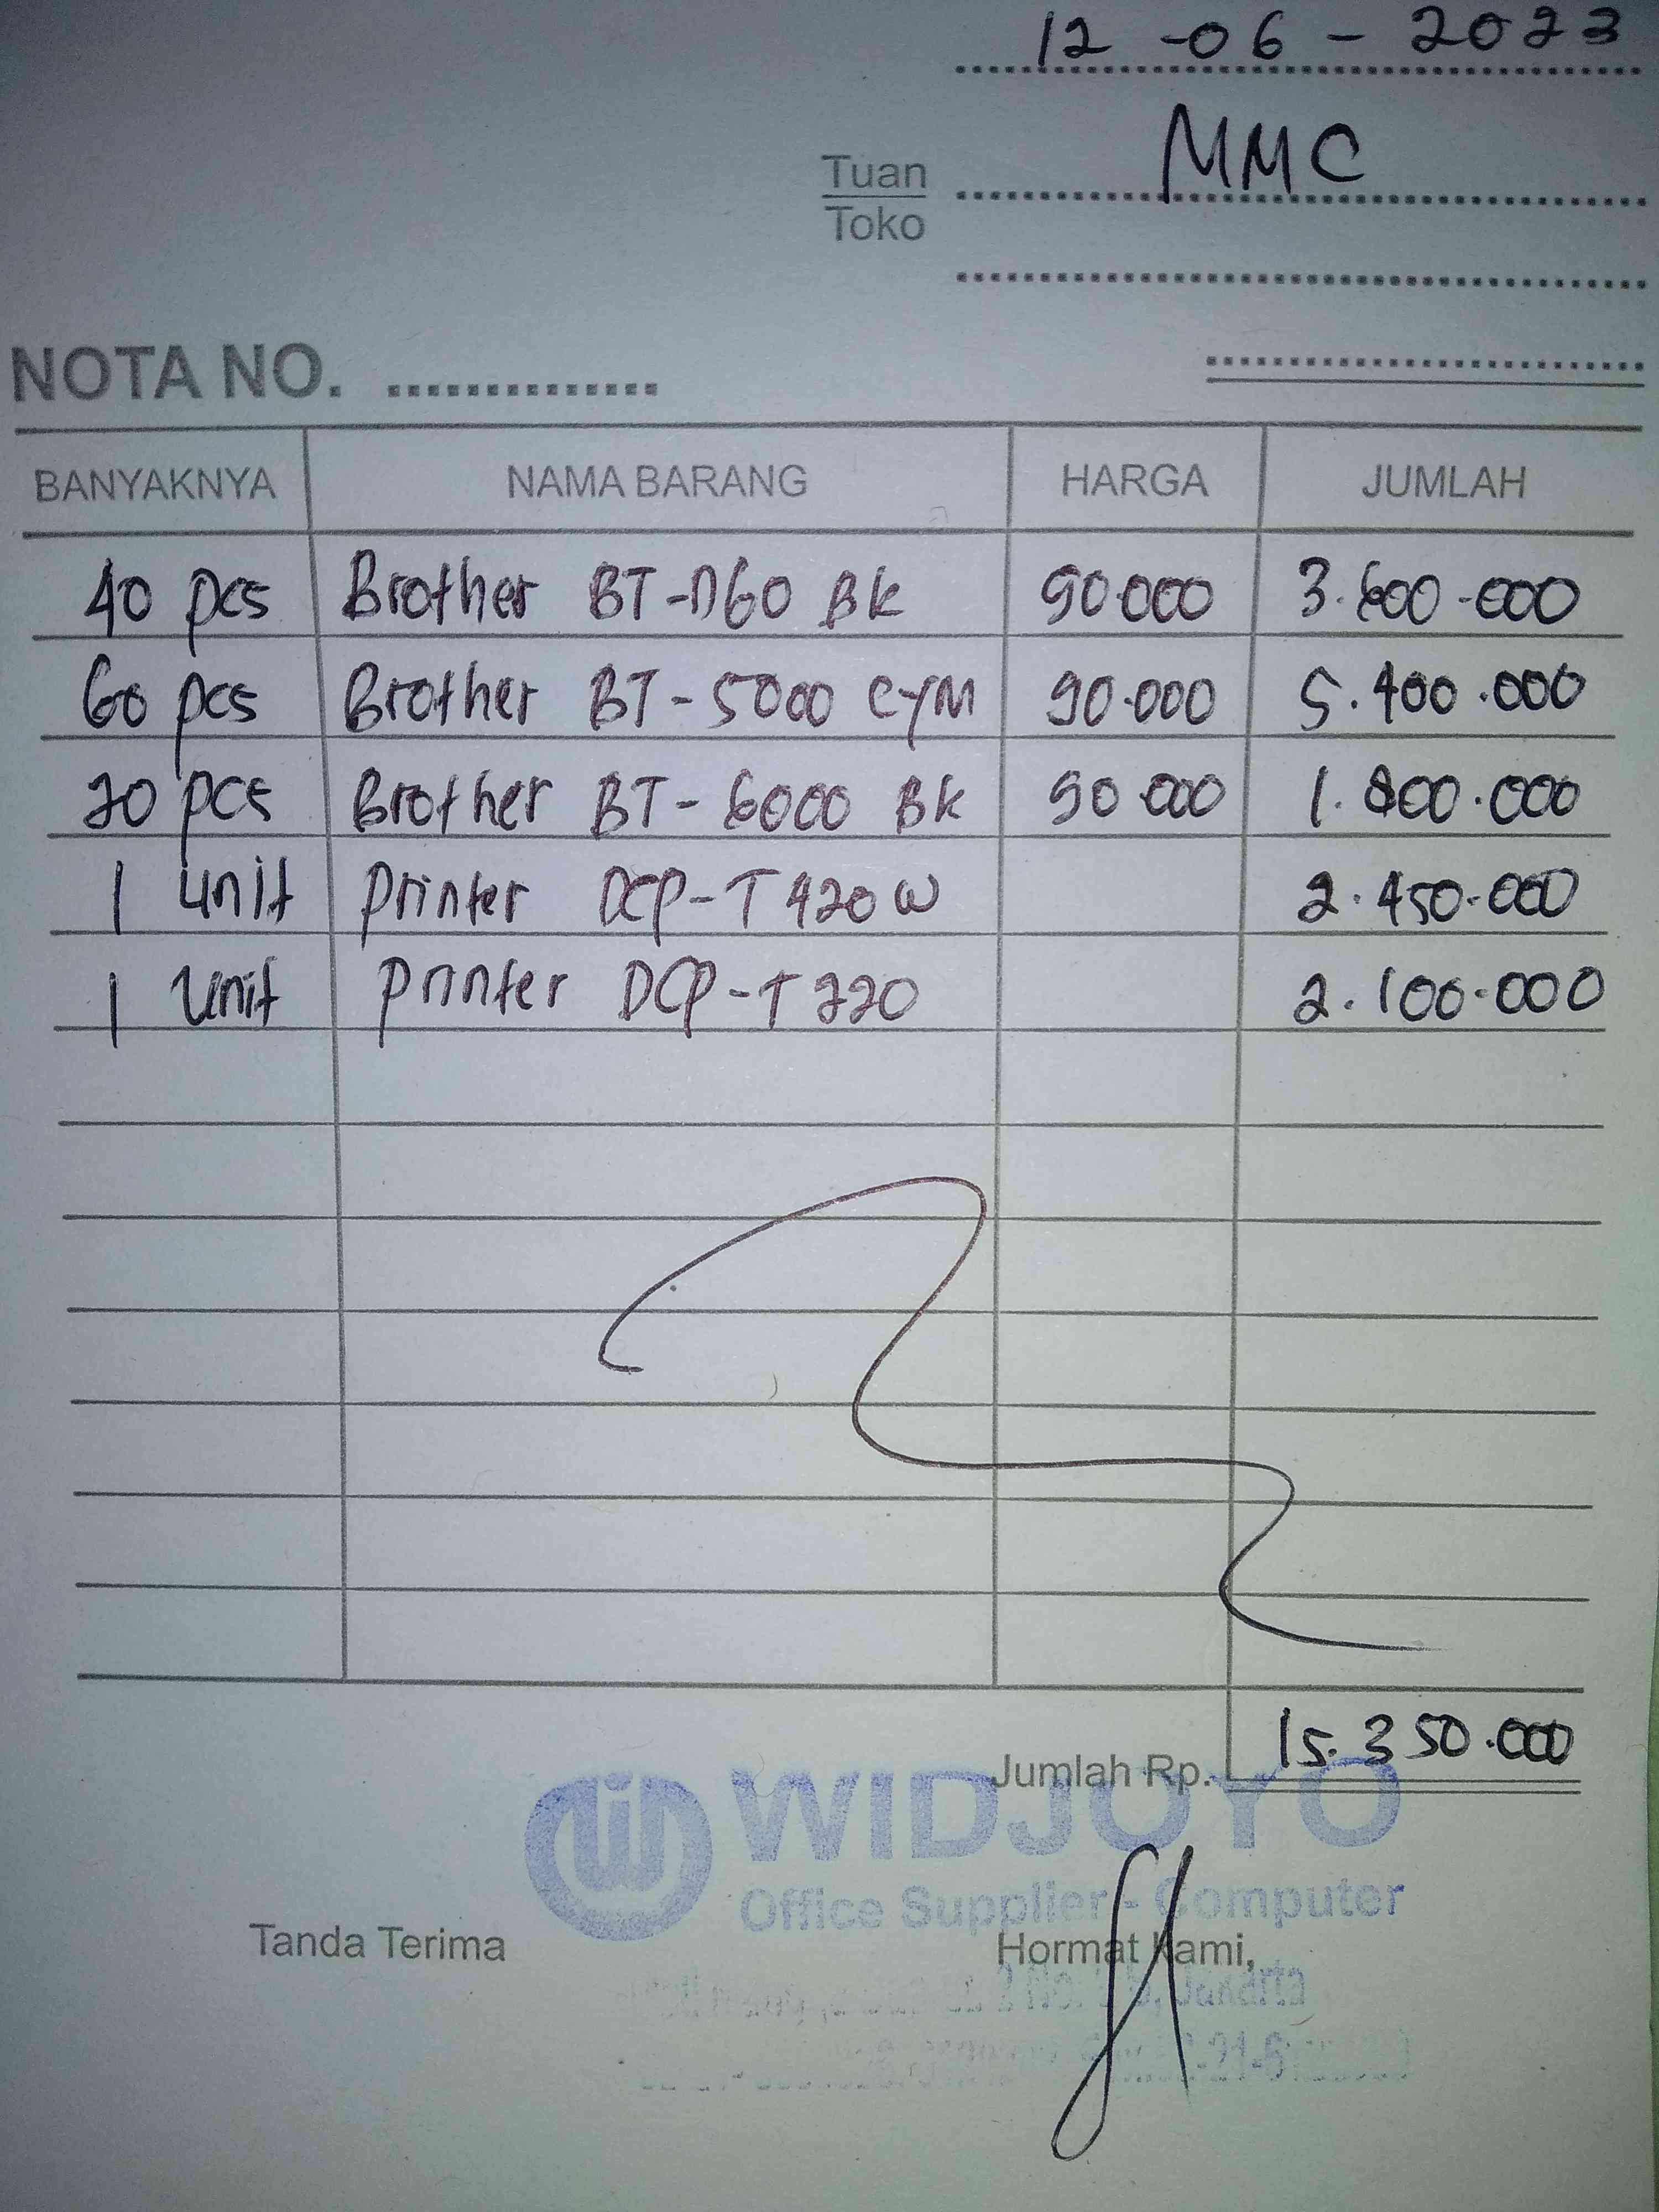 12-06-2023
Tuan MMC
Toko
NOTA NO. ...............
BANYAKNYA NAMA BARANG HARGA JUMLAH
40 pcs Brother BT-D60 BK 90.000 3.600.000
60 pcs Brother BT-5000 CYM 90.000 5.400.000
20 pcs Brother BT-6000 BK 90.000 1.800.000
1 unit Printer DCP-T420W 2.450.000
1 Unit Printer DCP-T220 2.100.000
Jumlah Rp. 15.350.000
WIDJOYO
Office Supplier - Computer
Tanda Terima Hormat Kami,
Jakarta